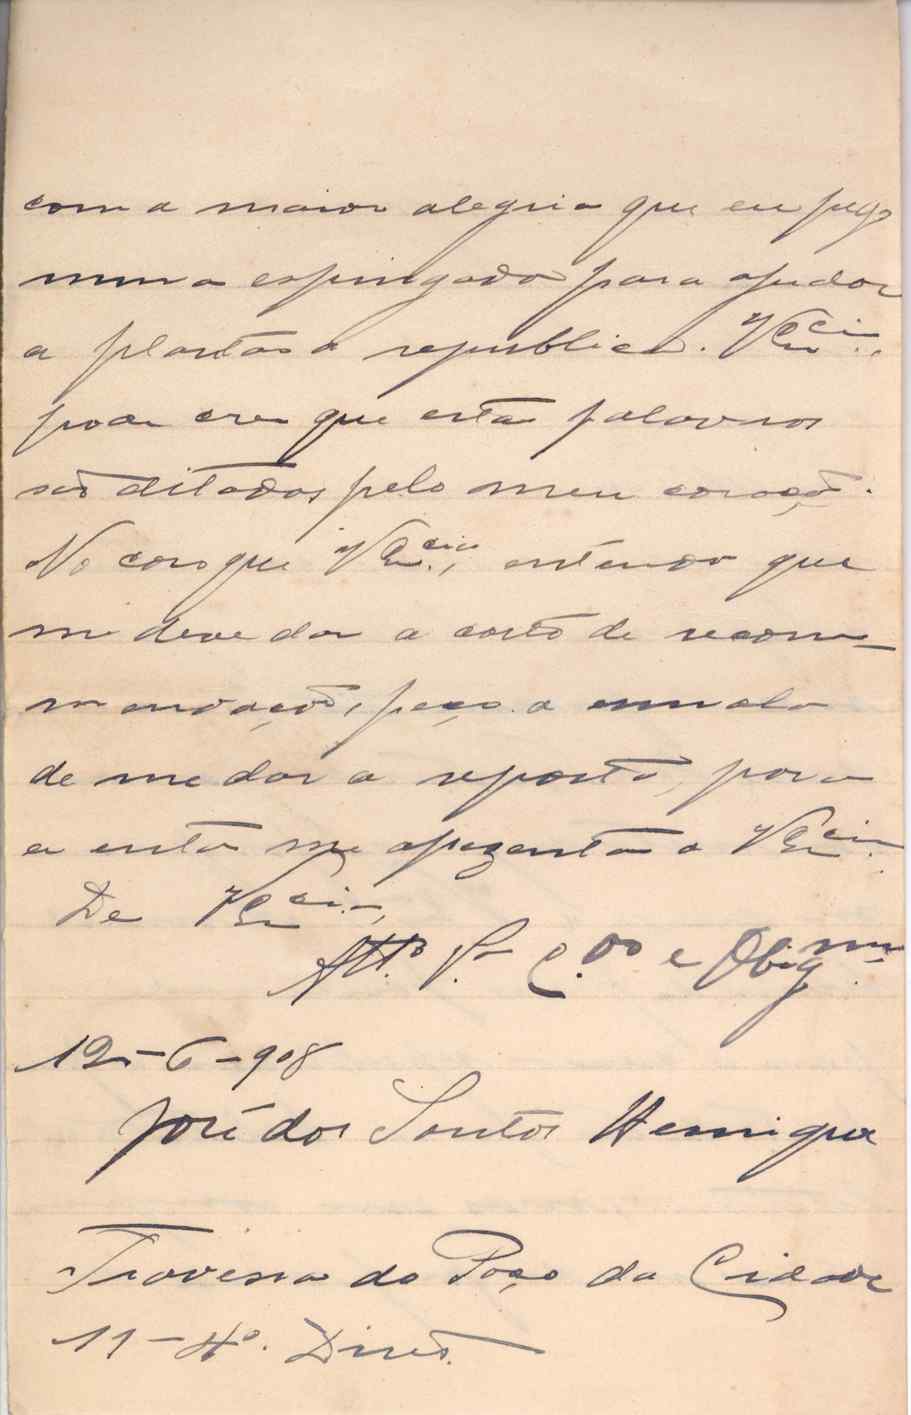 com a maior alegria que eu pego
numa espingarda para ajudar
a plantar a republica. V Ex.cia,
pode crer que estas palavras
são ditadas pelo meu coração.
No caso que V Ex.cia, entenda que
me deve dar a carta de recom-
mendação, peço a esmola
de me dar a reposta, para
eu entao me apezentar a V Ex.cia.
De V Ex.cia,
Att.º V.or C.do e Obig.mo
12-6-908
José dos Santos Henriques
Travessa do Poço da Cidade
11-4º. Direito.